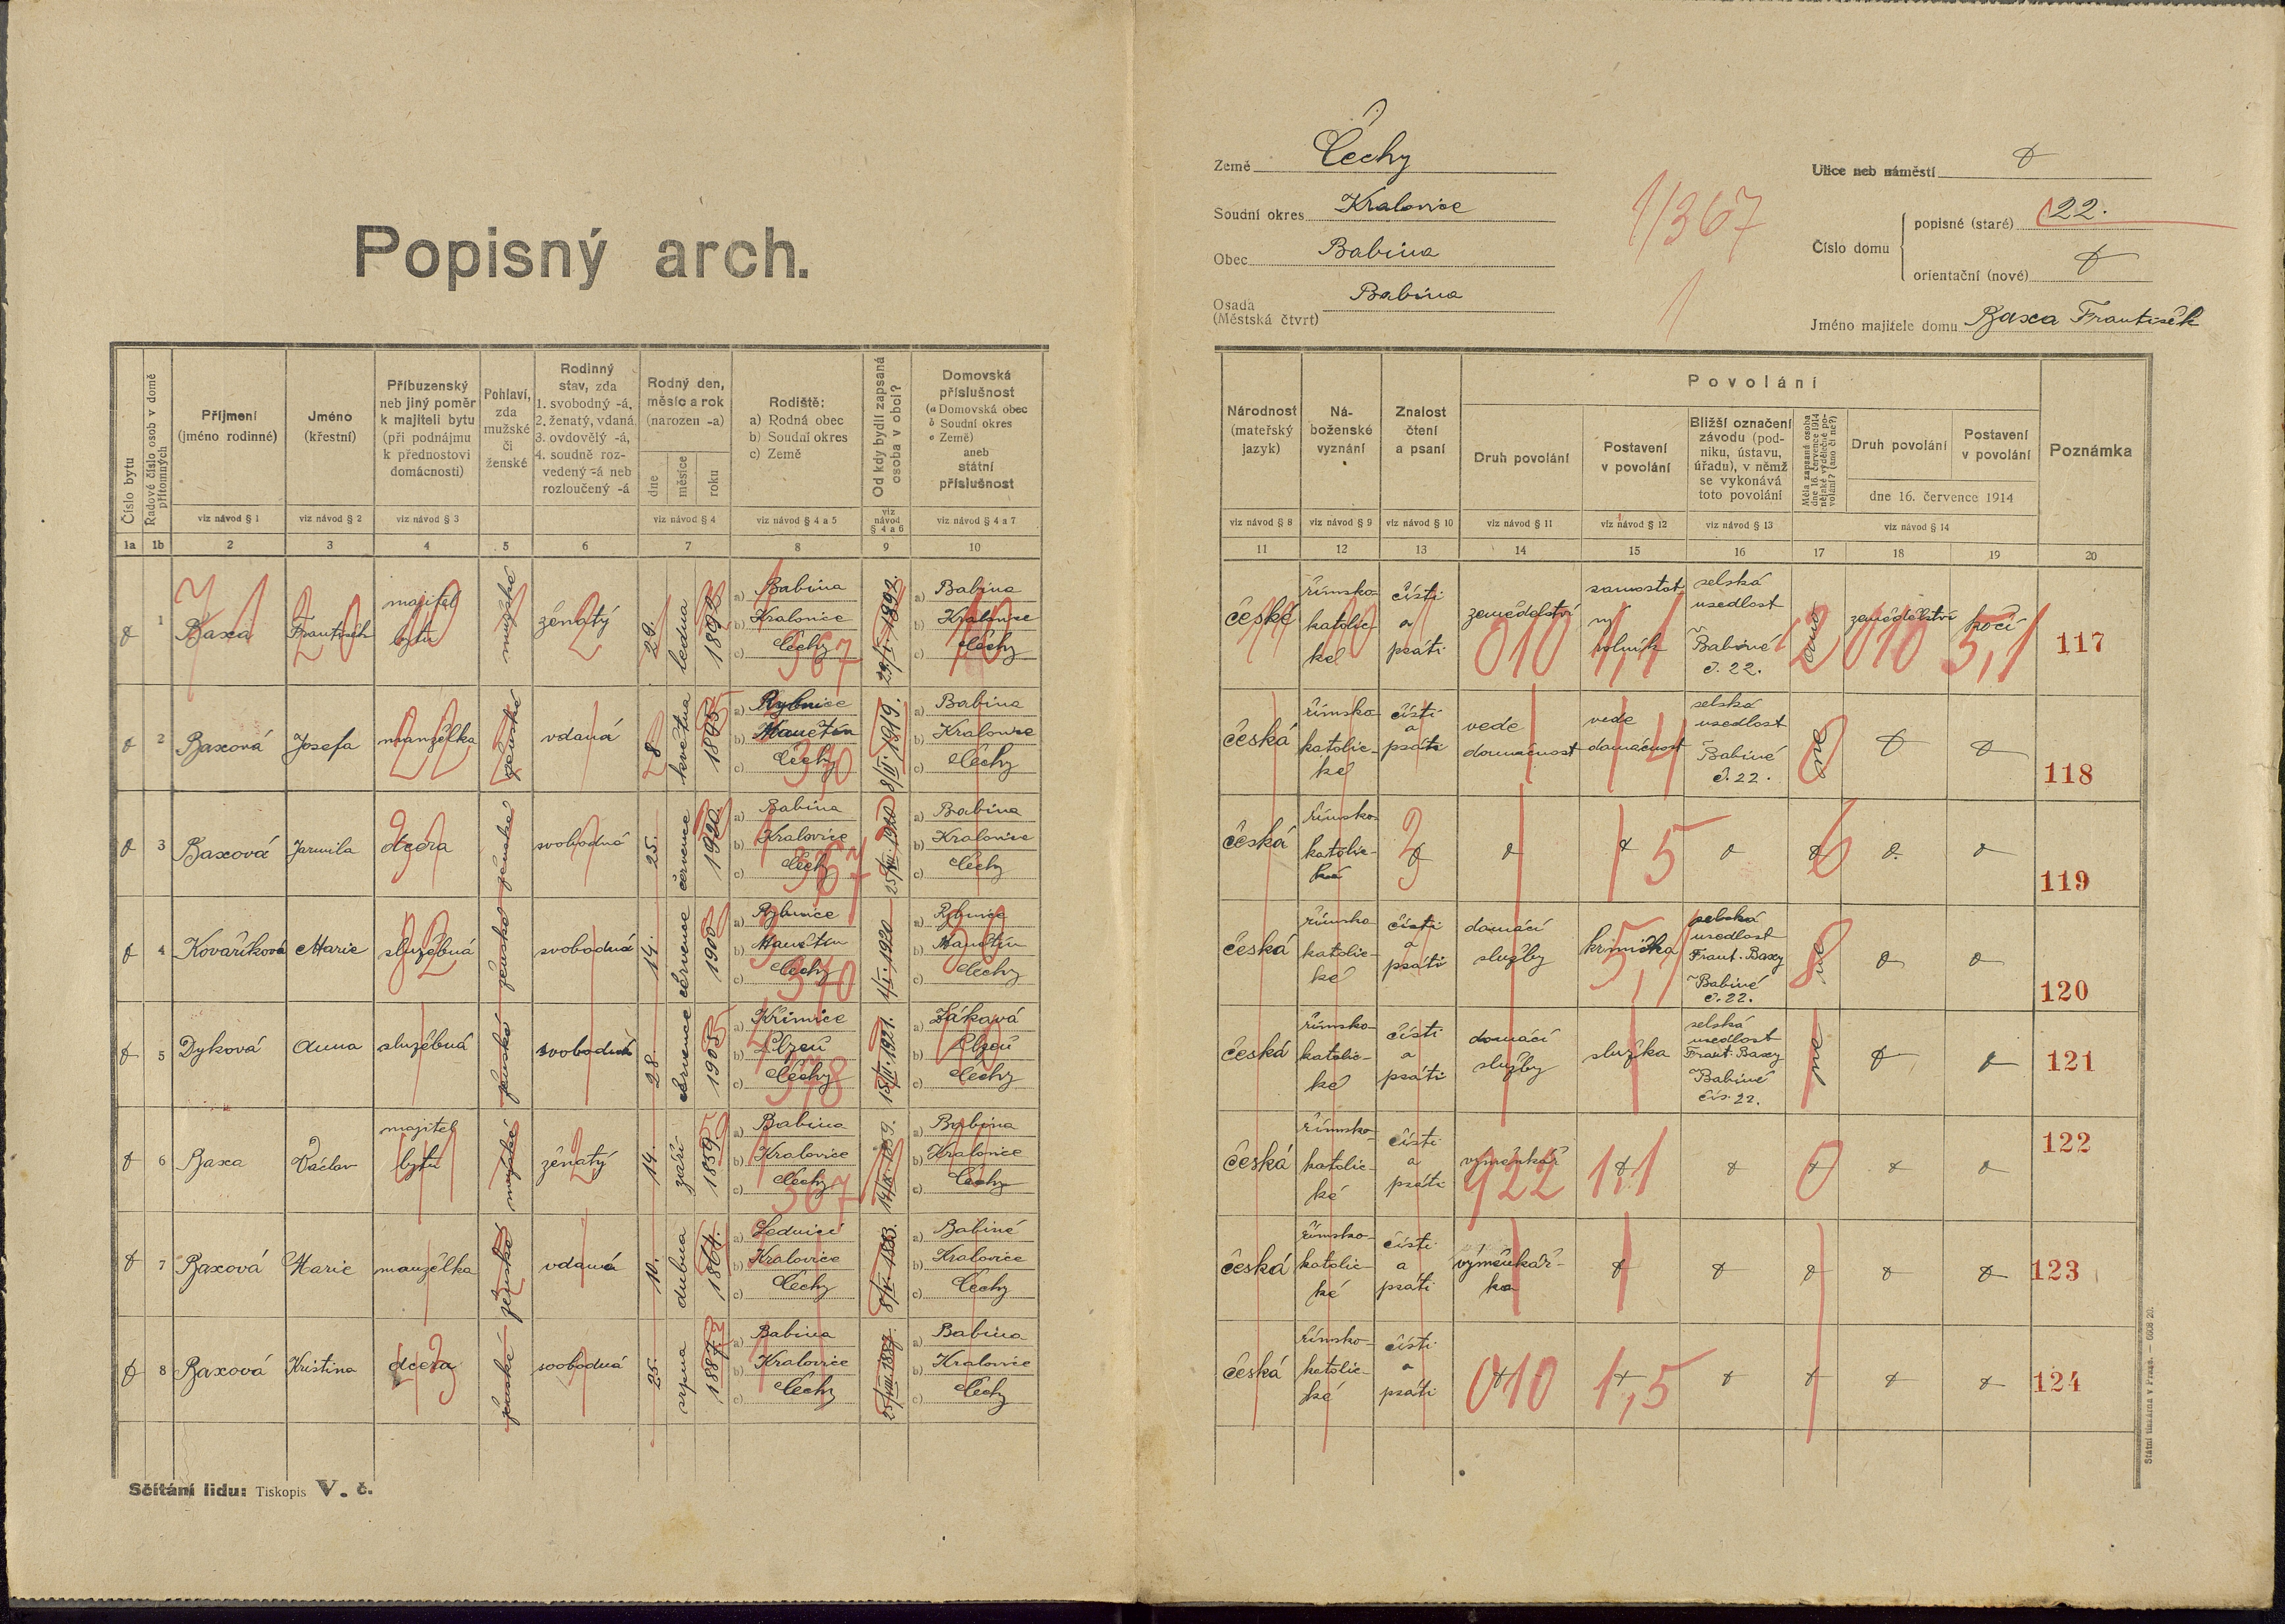 Popisný arch.
Číslo bytu
Řadové číslo osob v domě přítomných
Příjmení
(jméno rodinné)
viz návod § 1
Jméno
(křestní)
viz návod § 2
Příbuzenský
neb jiný poměr
k majiteli bytu
(při podnájmu
k přednostovi
domácnosti)
viz návod § 3
Pohlaví,
zda
mužské
či
ženské
Rodinný
stav, zda
1. svobodný -á,
2. ženatý, vdaná
3. ovdovělý -á,
4. soudně roz-
vedený -á neb
rozloučený -á
Rodný den,
měsíc a rok
(narozen -a)
dne
měsíce
roku
viz návod § 4
Rodiště:
a) Rodná obec
b) Soudní okres
c) Země
viz návod § 4 a 5
Od kdy bydlí zapsaná
osoba v obci?
viz
návod
§ 4 a 6
Domovská
příslušnost
(a Domovská obec
b Soudní okres
c Země)
aneb
státní
příslušnost
viz návod § 4 a 7
1a 1b 2 3 4 5 6 7 8 9 10
1 Baxa František majitel bytu mužské ženatý 29. ledna 1892
a) Babina
b) Kralovice
c) Čechy
29/I. 1892.
a) Babina
b) Kralovice
c) Čechy
2 Baxová Josefa manželka ženské vdaná 8 května 1895
a) Rybnice
b) Manětín
c) Čechy
8/II. 1919.
a) Babina
b) Kralovice
c) Čechy
3 Baxová Jarmila dcera ženské svobodná 25. července 1920.
a) Babina
b) Kralovice
c) Čechy
25/VII. 1920
a) Babina
b) Kralovice
c) Čechy
4 Kovaříková Marie služebná ženské svobodná 14. července 1900
a) Rybnice
b) Manětín
c) Čechy
1/I. 1920
a) Rybnice
b) Manětín
c) Čechy
5 Dyková Anna služebná ženské svobodná 28 července 1905
a) Křimice
b) Plzeň
c) Čechy
1921.
a) Žákavá
b) Plzeň
c) Čechy
6 Baxa Václav majitel bytu mužské ženatý 14. září 1859.
a) Babina
b) Kralovice
c) Čechy
14/IX. 1859.
a) Babina
b) Kralovice
c) Čechy
7 Baxová Marie manželka ženské vdaná 10. dubna 1864.
a) Lednici
b) Kralovice
c) Čechy
1883.
a) Babině
b) Kralovice
c) Čechy
8 Baxová Kristina dcera ženské svobodná 25. srpna 1887.
a) Babina
b) Kralovice
c) Čechy
25/VIII. 1887.
a) Babina
b) Kralovice
c) Čechy
Sčítání lidu: Tiskopis V. č.
Země Čechy
Soudní okres Kralovice
Obec Babina
Osada
(Městská čtvrt) Babina
1/367
1
Ulice neb náměstí
Číslo domu
popisné (staré) 22.
orientační (nové)
Jméno majitele domu Baxa František
Národnost
(mateřský
jazyk)
viz návod § 8
Ná-
boženské
vyznání
viz návod § 9
Znalost
čtení
a psaní
viz návod § 10
Povolání
Druh povolání
viz návod § 11
Postavení
v povolání
viz návod § 12
Bližší označení
závodu (pod-
niku, ústavu,
úřadu), v němž
se vykonává
toto povolání
viz návod § 13
Měla zapsaná osoba
dne 16. července 1914
nějaké výdělečné po-
volání? (ano či ne?)
Druh povolání
Postavení
v povolání
dne 16. července 1914
viz návod § 14
Poznámka
11 12 13 14 15 16 17 18 19 20
české římsko-katolic-ké čísti a psáti zemědělství samostatný rolník selská usedlost Babině č. 22. ano zemědělství kočí 117
010 1,1 2 010 5,1
česká římsko-katolic-ké čísti a psáti vede domácnost vede domácnost selská usedlost Babině č. 22. ne 118
česká římsko-katolic-ká 119
česká římsko-katolic-ké čísti a psáti domácí služby selská usedlost Frant. Baxy Babině č. 22. ne 120
česká římsko-katolic-ké čísti a psáti domácí služby služka selská usedlost Frant. Baxy Babině čís. 22. ne 121
česká římsko-katolic-ké čísti a psáti výměnkář 122
922 1,1 0
česká římsko-katolic-ké čísti a psáti výměnkář-ka 123
česká římsko-katolic-ké čísti a psáti 124
010 1,5
Státní tiskárna v Praze. — 6608 20.